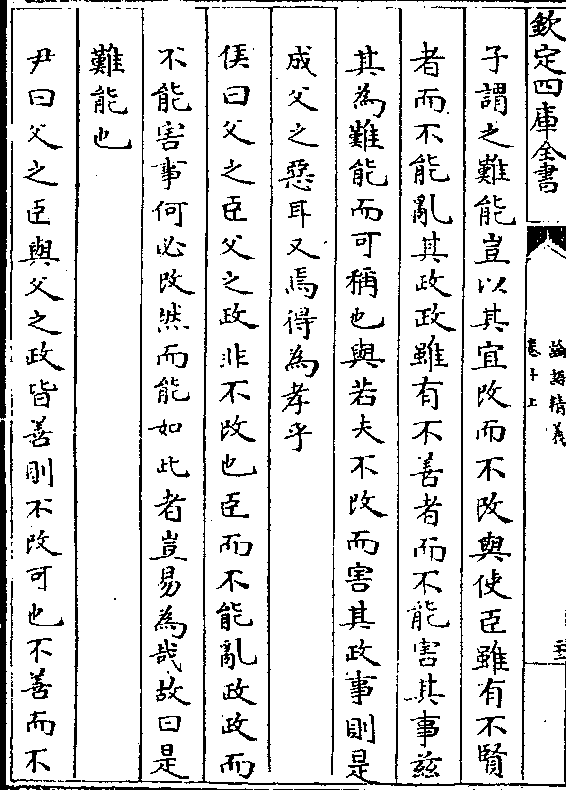 欽定四庫全書
論語精義
卷十上
子謂之難能豈以其宜改而不改與使臣雖有不賢
者而不能亂其政政雖有不善者而不能害其事茲
其為難能而可稱也與若夫不改而害其政事則是
成父之惡耳又焉得為孝乎
侯曰父之臣父之政非不改也臣而不能亂政政而
不能害事何必改然而能如此者豈易為哉故曰是
難能也
尹曰父之臣與父之政皆善則不改可也不善而不